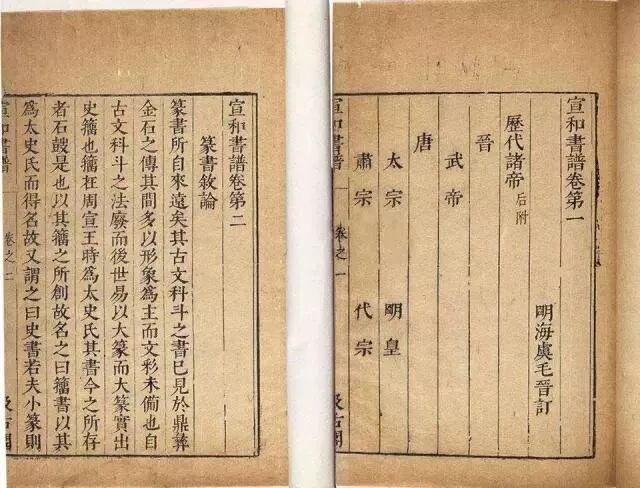 宣和書譜卷第一
明海虞毛晉訂
歷代諸帝后附
晉
武帝
唐
太宗 明皇
肅宗 代宗
宣和書譜 卷之一 汲古閣
宣和書譜卷第二
篆書敘論
篆書所自來遠矣其古文科斗之書已見於鼎彝
金石之傳其間多以形象爲主而文彩未僃也自
古文科斗之法廢而後世易以大篆而大篆實出
史籀也籀在周宣王時爲太史氏其書今之所存
者石鼓是也以其籀之所創故名之曰籀書以其
爲太史氏而得名故又謂之曰史書若夫小篆則
宣和書譜 卷之二 汲古閣